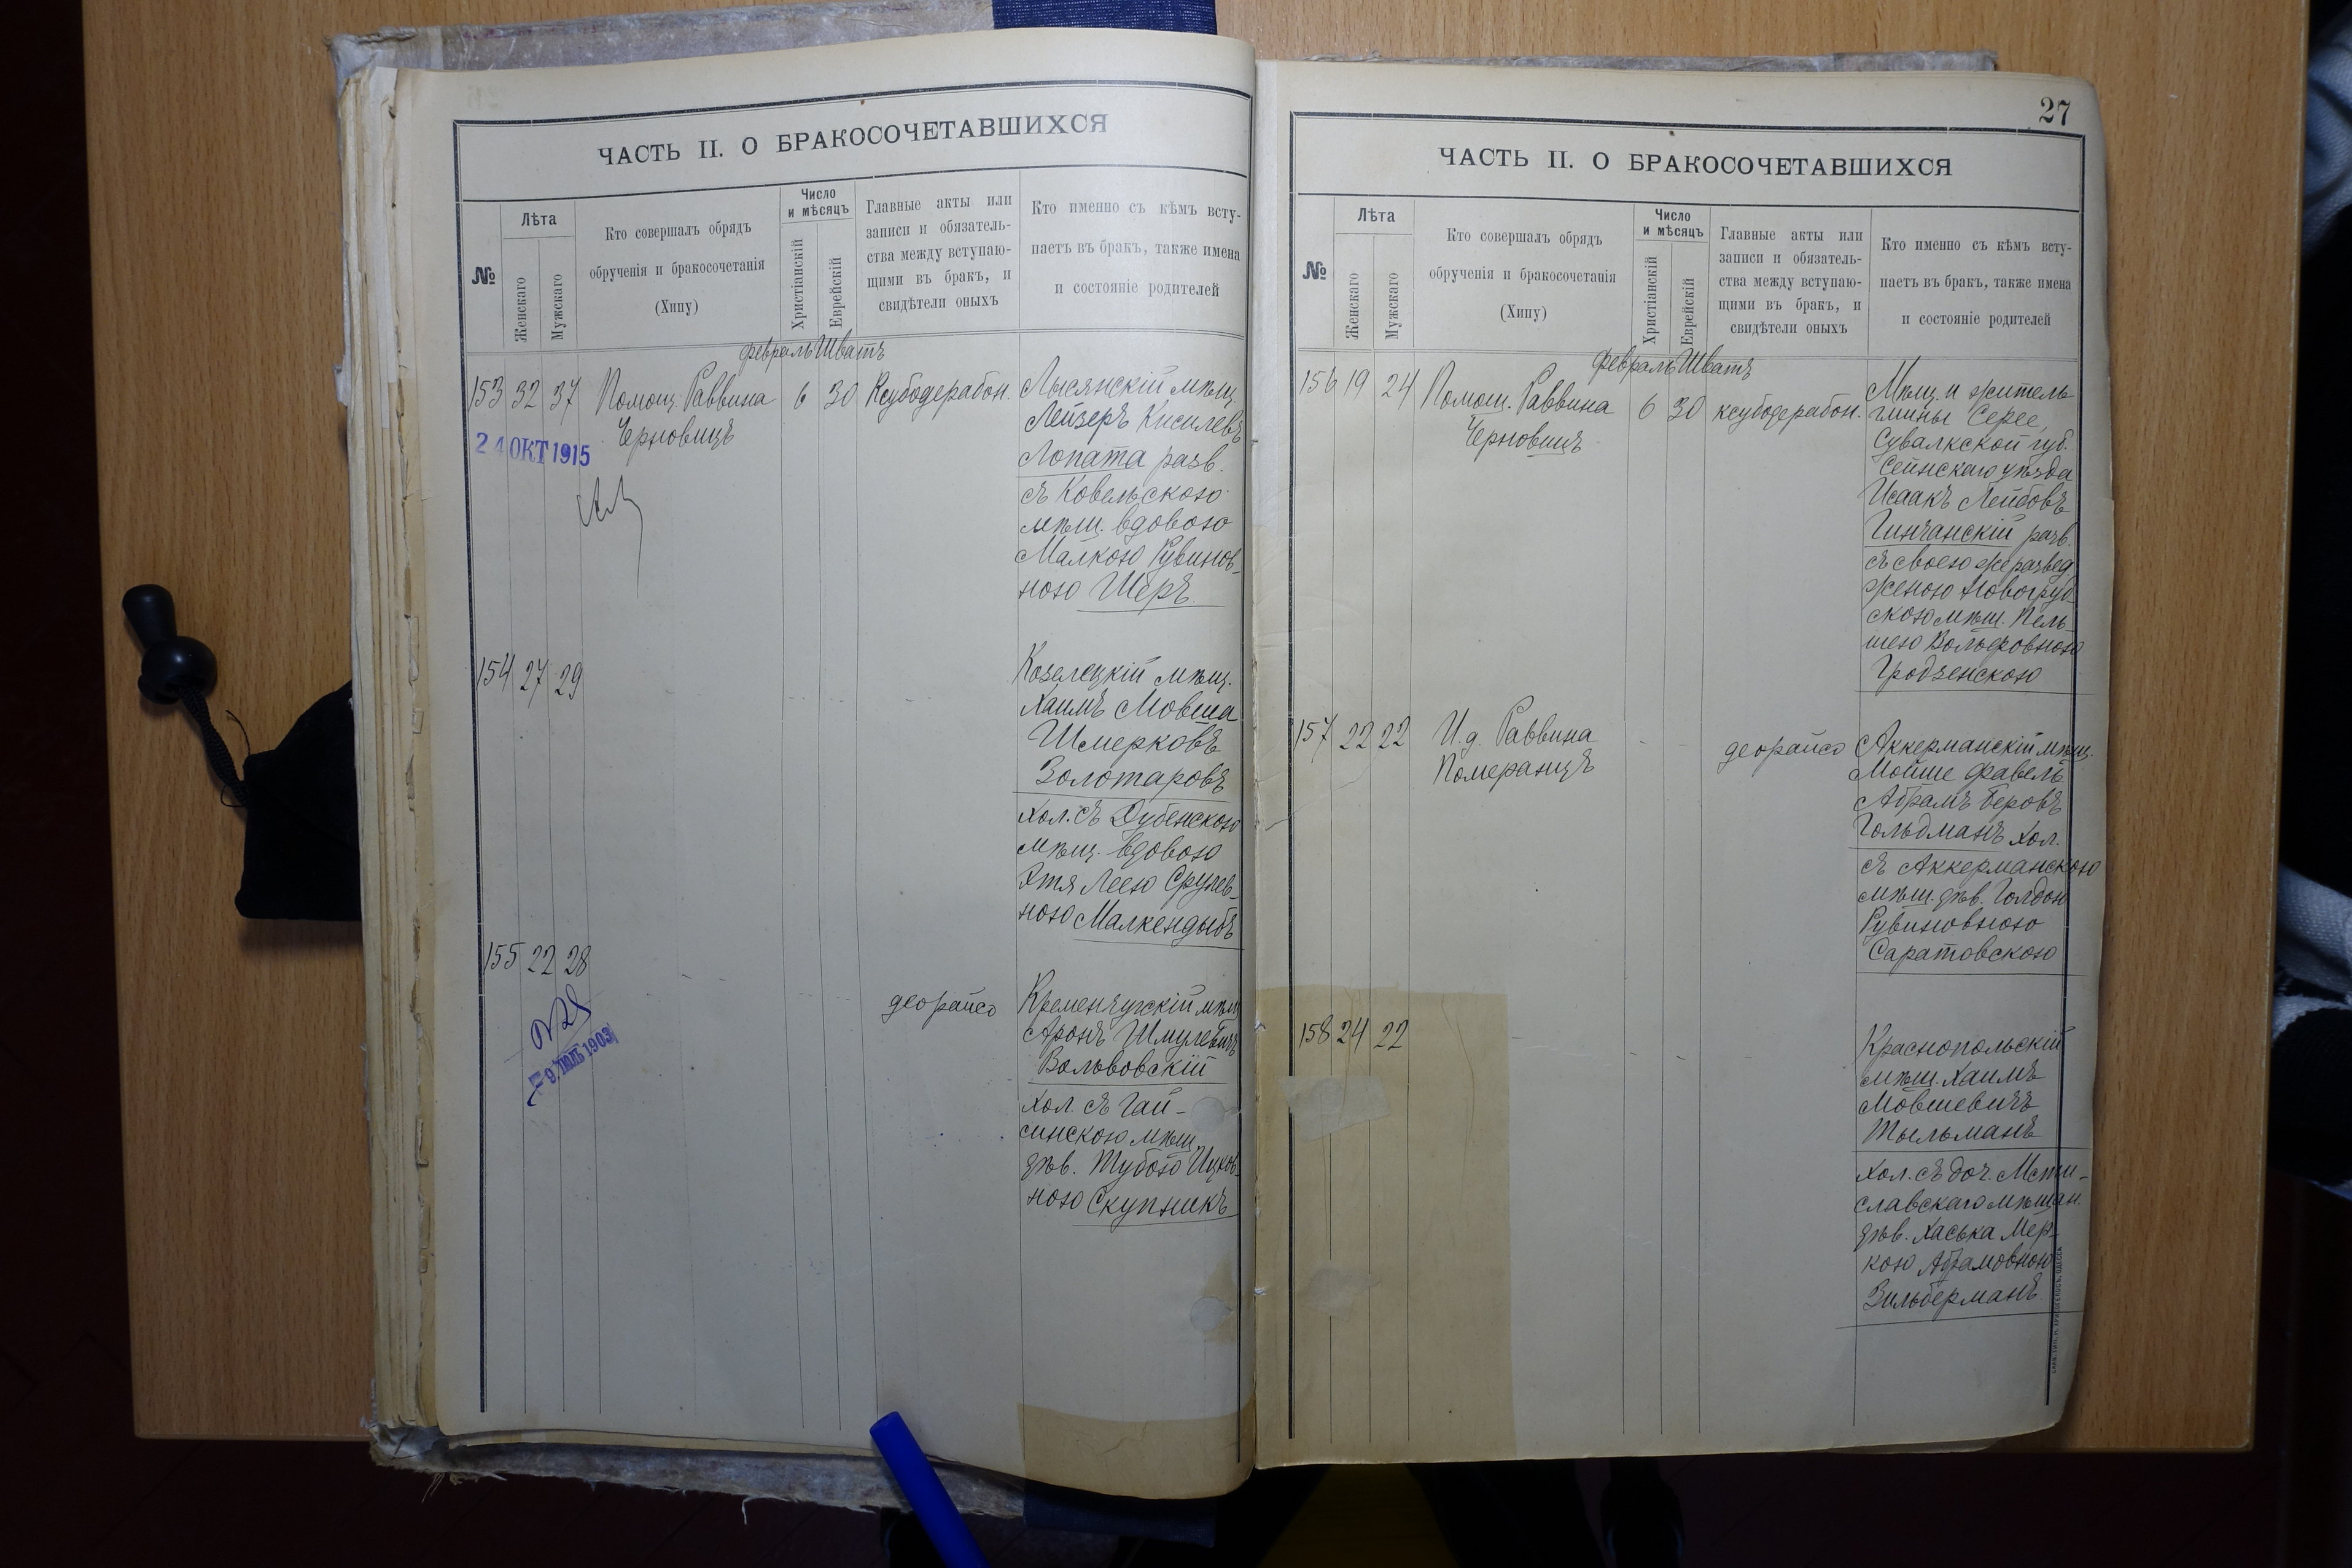 ЧАСТЬ II. О БРАКОСОЧЕТАВШИХСЯ
№
Лѣта
Женскаго
Мужскаго
Кто совершалъ обрядъ
обрученія и бракосочетанія
(Хипу)
Число
и мѣсяцъ
Христіанскій
Еврейскій
Главные акты или
записи и обязатель-
ства между вступаю-
щими въ бракъ, и
свидѣтели оныхъ
Кто именно съ кѣмъ всту-
паетъ въ бракъ, также имена
и состояніе родителей
февраль Шватъ
153 32 37 Помощ. Раввина 6 30 Ксубодерабон.
Черновицъ
24 ОКТ 1915
Лысянскій мѣщ.
Лейзеръ Кисилевъ
Лопата разв.
съ Ковельскою
мѣщ. вдовою
Малкою Рувинов-
ною Шеръ
154 27 29
Козелецкій мѣщ.
Хаимъ Мовша
Шмерковъ
Золотаровъ
хол. съ Дубенскою
мѣщ. вдовою
Леею Срулев-
ною Малкендыбъ
155 22 28
деорайсо
9 ІЮЛЬ 1903
Кременчугскій мѣщ.
Аронъ Шмулевичъ
Вольвовскій
хол. съ Гай-
синскою мѣщ.
дѣв. Тубою Ицков-
ною Скупникъ
27
ЧАСТЬ II. О БРАКОСОЧЕТАВШИХСЯ
№
Лѣта
Женскаго
Мужскаго
Кто совершалъ обрядъ
обрученія и бракосочетанія
(Хипу)
Число
и мѣсяцъ
Христіанскій
Еврейскій
Главные акты или
записи и обязатель-
ства между вступаю-
щими въ бракъ, и
свидѣтели оныхъ
Кто именно съ кѣмъ всту-
паетъ въ бракъ, также имена
и состояніе родителей
февраль Шватъ
156 19 24 Помощ. Раввина 6 30 ксубодерабон.
Черновицъ
Мѣщ. и житель
гмины Серее,
Сувалкской губ.
Сейнскаго уѣзда
Исаакъ Лейбовъ
Гинчанскій разв.
съ своею же развед.
женою Новогруд-
скою мѣщ. Пель-
шею Вольфовною
Гродзенскою
157 22 22 И.д. Раввина
Померанцъ
деорайсо
Аккерманскій мѣщ.
Мойше Фавель
Абрамъ Беровъ
Гольдманъ хол.
съ Аккерманскою
мѣщ. дѣв. Голдою
Рувиновною
Саратовскою
158 24 22
Краснопольскій
мѣщ. Хаимъ
Мовшевичъ
Тыльманъ
хол. съ доч. Мсти-
славскаго мѣщан.
дѣв. Хаська Мер-
кою Абрамовною
Зильберманъ